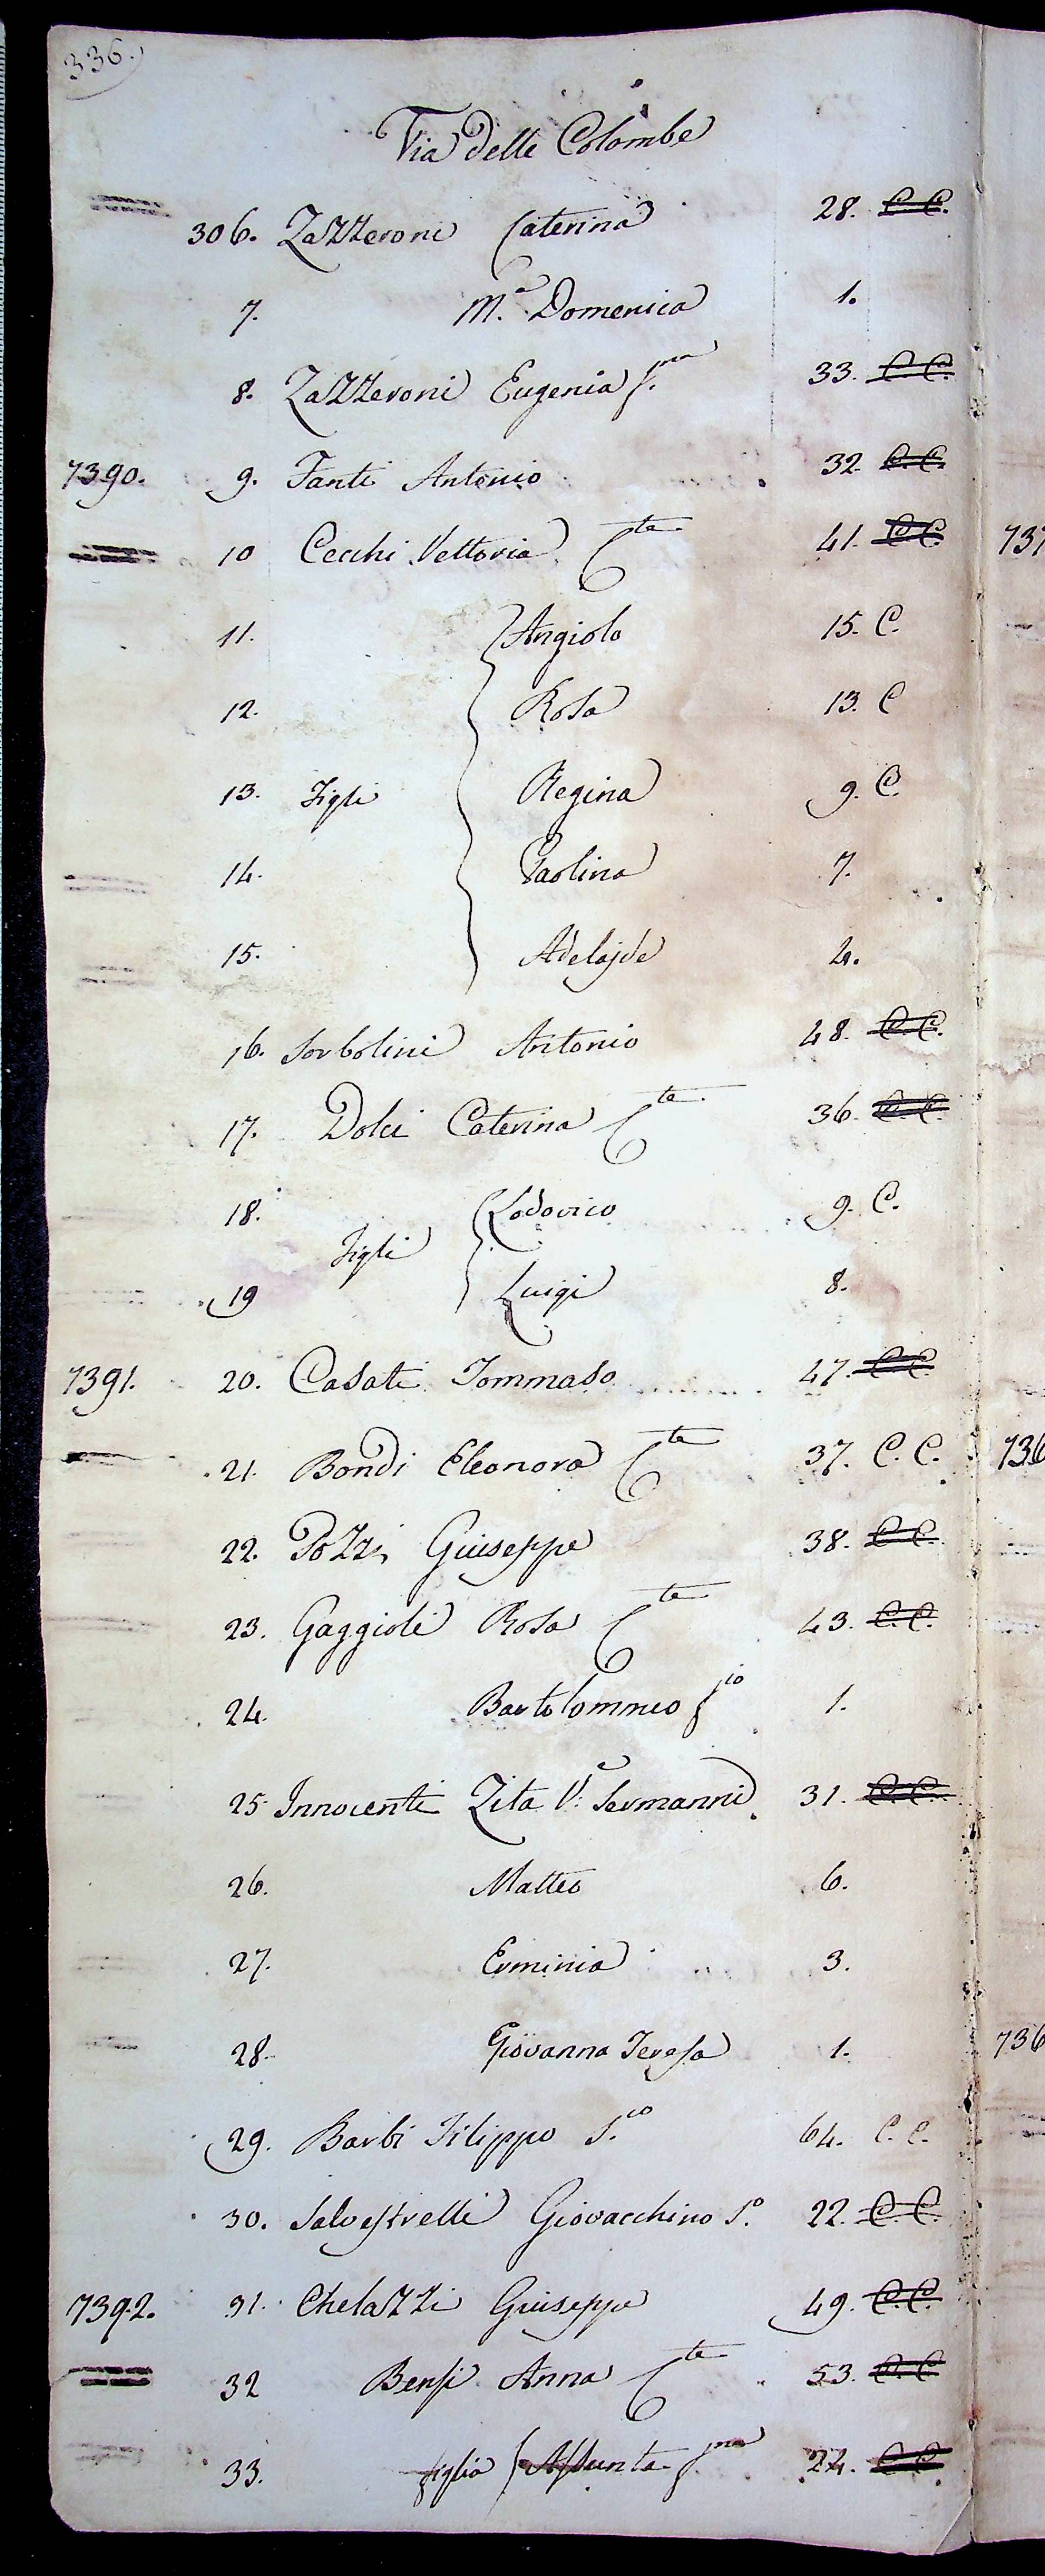 336.
Via delle Colombe
306. Zazzeroni Caterina 28. C. C.
7. M.ª Domenica 1.
8. Zazzeroni Eugenia f.na 33. C. C.
7390. 9. Fanti Antonio 32. C. C.
10 Cecchi Vettoria C.te 41. C. C. 737
11. Angiolo 15. C.
12. Rosa 13. C
13. Figli Regina 9. C.
14. Paolina 7.
15. Adelajde 4.
16. Sorbolini Antonio 48. C. C.
17. Dolci Caterina C.te 36. C. C.
18. Lodovico 9. C.
Figli
19 Luigi 8.
7391. 20. Casati Tommaso 47. C. C.
21. Bondi Eleonora C.te 37. C. C. 736
22. Pozzi Giuseppe 38. C. C.
23. Gaggioli Rosa C.te 43. C. C.
24. Bartolommeo f.io 1.
25 Innocenti Zita V.ª Sermanni 31. C. C.
26. Matteo 6.
27. Erminia 3.
28. Giovanna Teresa 1. 736
29. Barbi Filippo S.io 64. C. C.
30. Salvestrelli Giovacchino S.o 22. C. C.
7392. 31. Chelazzi Giuseppe 49. C. C.
32 Bensi Anna C.te 53. C. C
33. figlia Assunta f.na 22. C. C